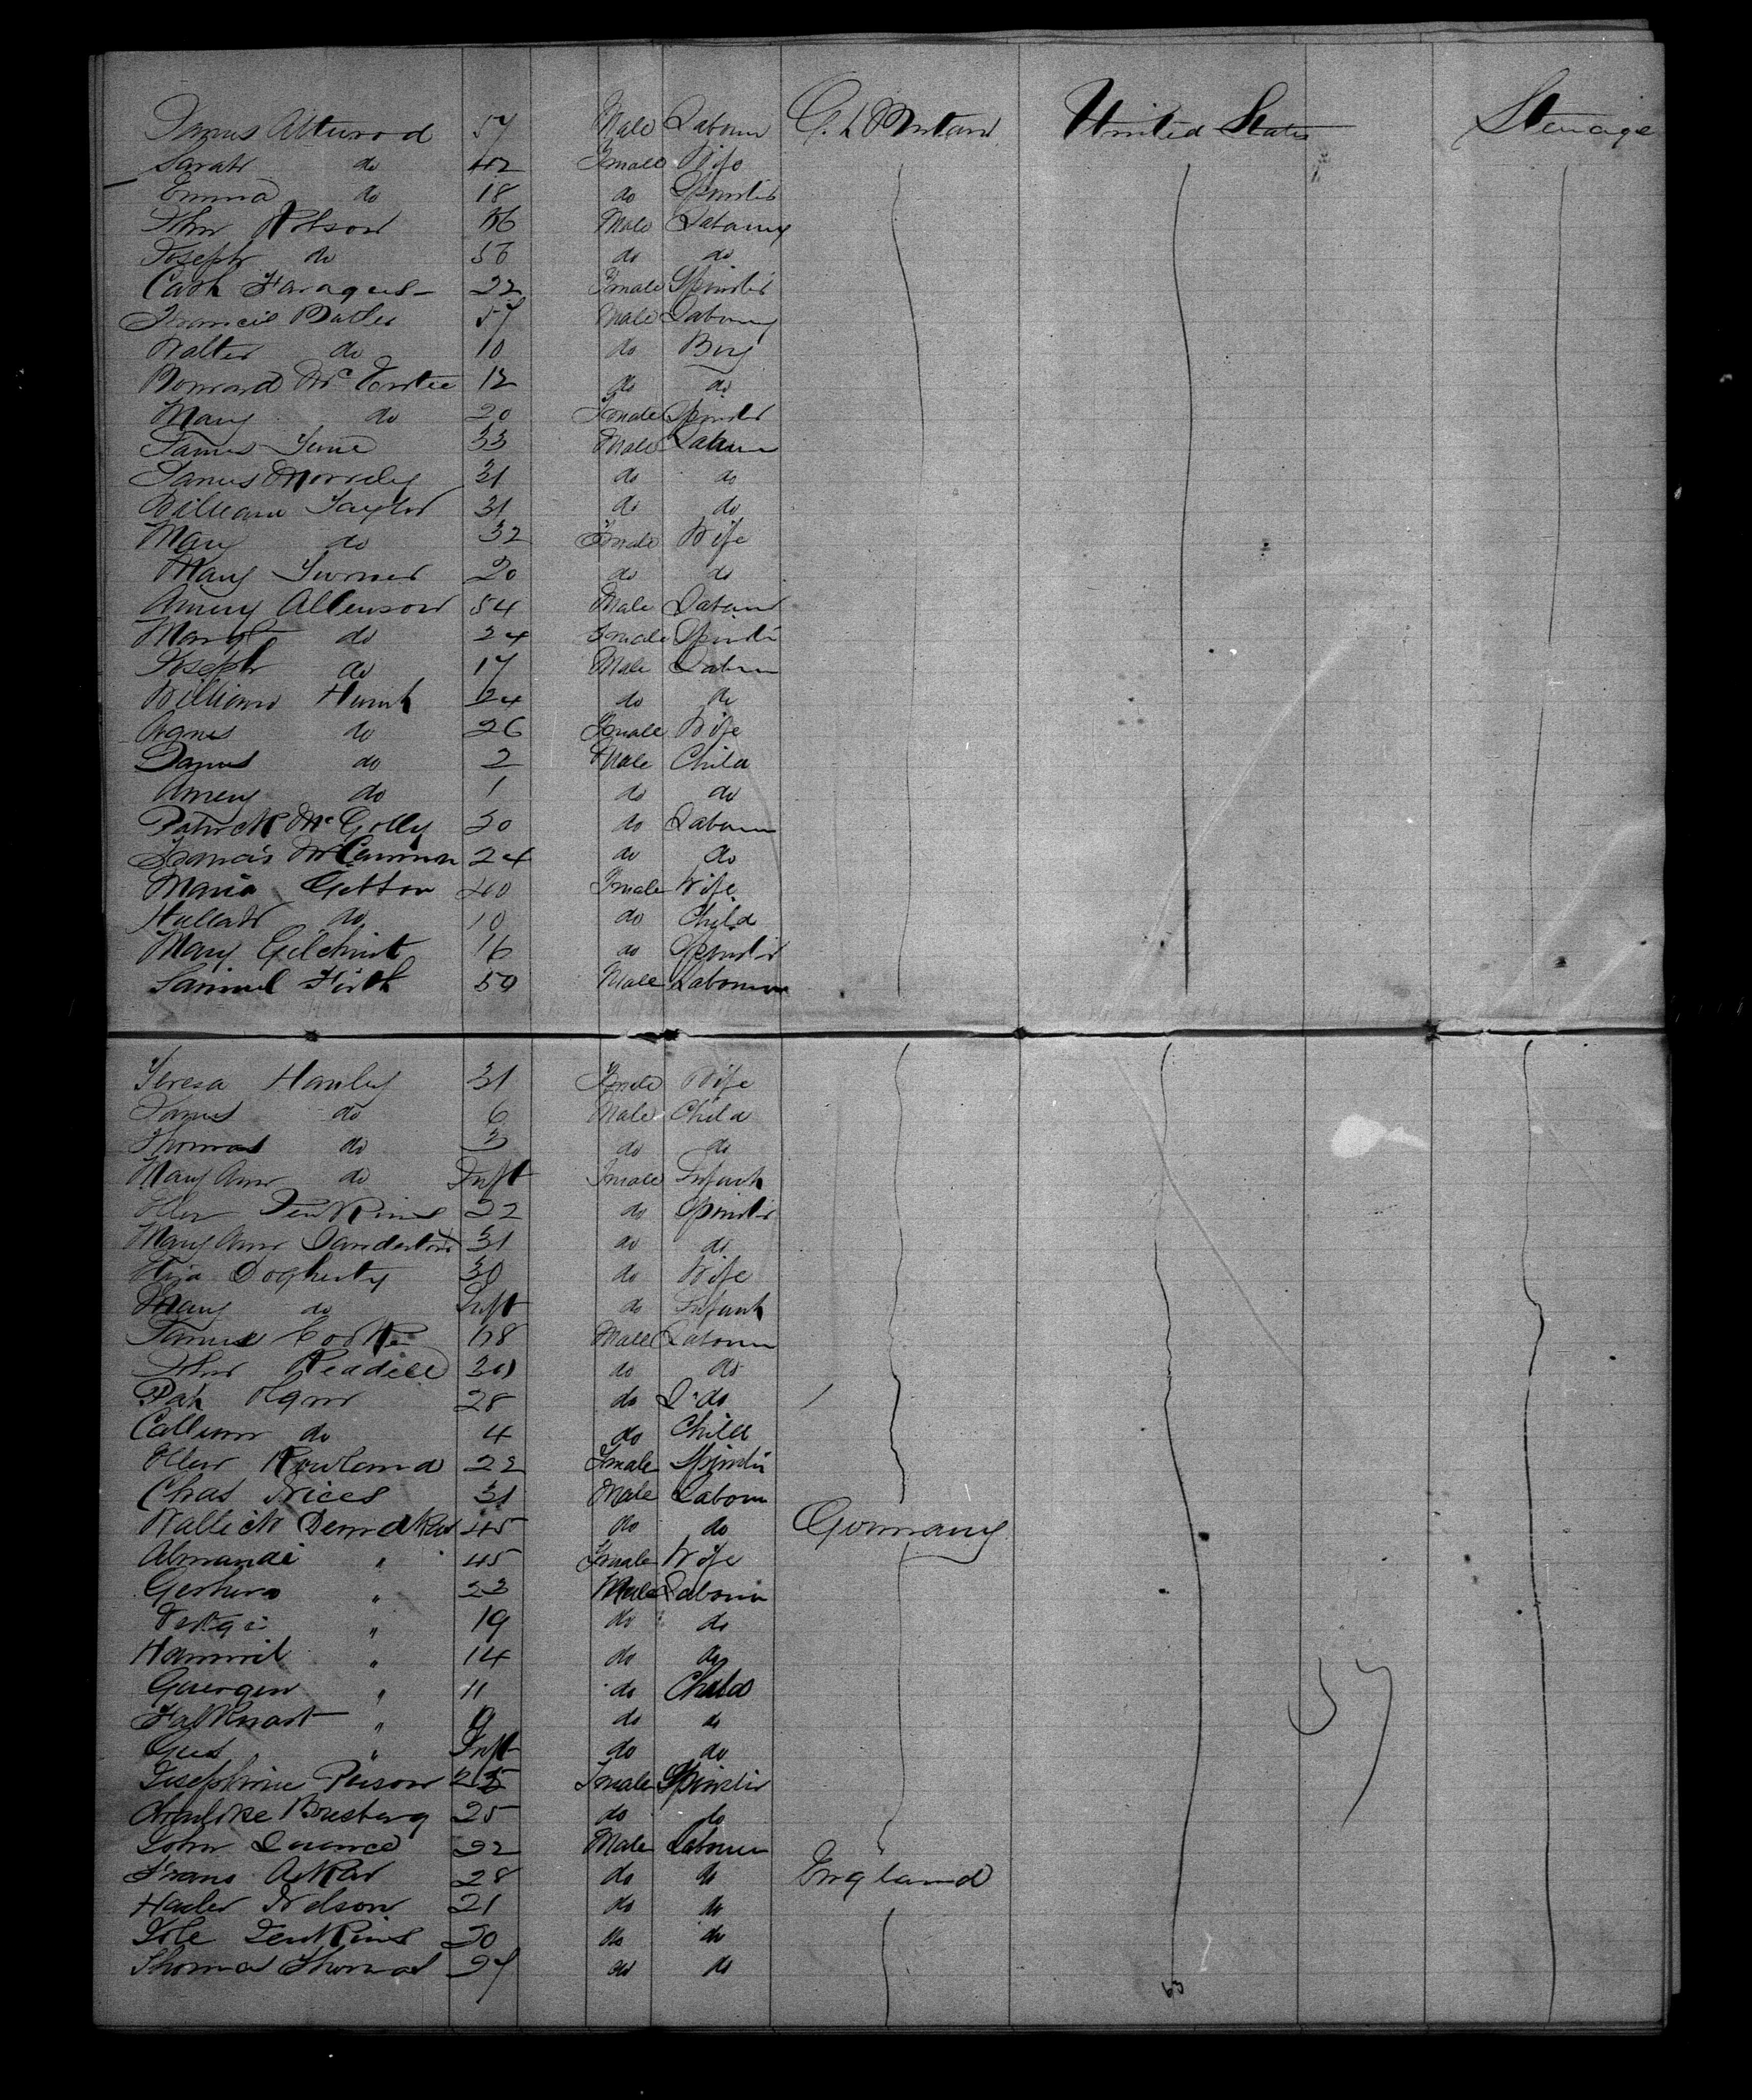 James Attwood 57 Male Labour G. t Britain United States Steerage
Sarah do 42 Female Wife
Emma do 18 do Spinster
John Robson 46 Male Labourer
Joseph do 50 do do
Cath Faragus 22 Female Spinster
Francis Butler 57 Male Labourer
Walter do 10 do Boy
Bernard Mc 12 do do
Mary do 20 Female Spinster
James June 33 Male Labour
James Morrely 31 do do
William Taylor 31 do do
Mary do 32 Female Wife
Mary Turner 20 do do
Amery Allenson 54 Male Labour
Margt do 24 Female Spinster
Joseph do 17 Male Labour
William Hunt 24 do do
Agnes do 26 Female Wife
James do 2 Male Child
Amery do 1 do do
Patrick Mc Golly 30 do Labour
Francis McCannon 24 do do
Maria Getton 40 Female Wife
do 10 do Child
Mary Gilchrist 16 do Spinster
Samuel Firth 50 Male Labourer
Teresa Hanley 31 Female Wife
James do 6 Male Child
Thomas do 3 do do
Mary Ann do Inft Female Infant
Ellen Jenkins 22 do Spinster
Mary Ann Sanderson 31 do do
Eliza Dogherty 30 do Wife
Mary do Inft do Infant
James Cooke 18 Male Labour
John Readdle 20 do do
Pat 28 do L do
Callum do 4 do Child
Ellen Rowland 22 Female Spinster
Chas Prices 31 Male Labour
Wallick 45 do do Germany
Almandi " 45 Female Wife
Gerhard " 23 Male Labour
" 19 do do
Hammil " 14 do do
Guergen " 11 do Child
Falknart " 9 do do
Gus " Inft do do
Josephine Person 25 Female Spinster
Bousberg 25 do do
John 22 Male Labour
Frans Askar 28 do do England
Hader Nelson 21 do do
Jole Jenkins 20 do do
Thomas Thomas 27 do do
57